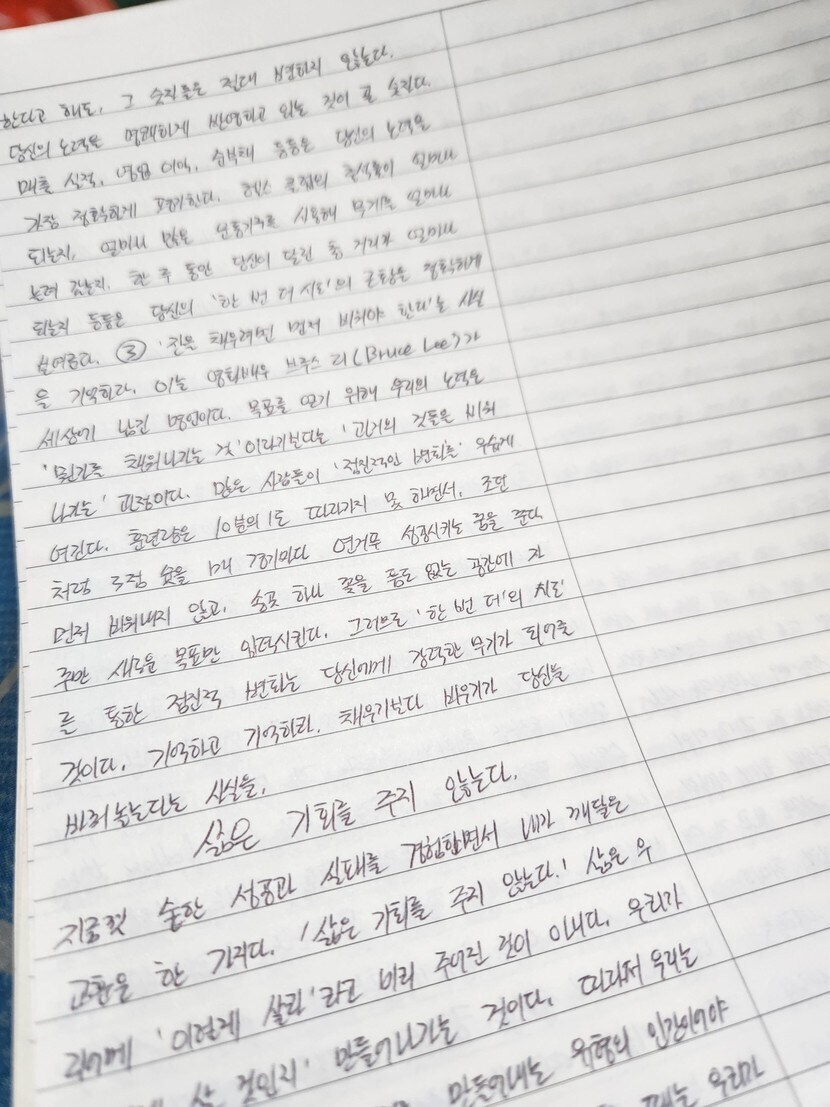 한다고 해도, 그 숫자들은 절대 변하지 않는다.
당신의 노력을 명쾌하게 반영하고 있는 것이 곧 숫자다.
매출 실적, 영업 이익, 승부패 등등은 당신의 노력을
가장 정확하게 평가한다. 헬스 클럽의 출석률이 얼마나
되는지, 얼마나 많은 운동기구를 사용해 무게를 얼마나
늘려 갔는지, 한 주 동안 당신이 달린 총 거리가 얼마나
되는지 등등은 당신의 '한 번 더 시도'의 근황을 정확하게
보여준다. ③ '잔을 채우려면 먼저 비워야 한다'는 사실
을 기억하라. 이는 영화배우 브루스 리(Bruce Lee)가
세상에 남긴 명언이다. 목표를 얻기 위해 우리의 노력은
'뭔가를 채워나가는 것'이라기보다는 '과거의 것들을 비워
나가는' 과정이다. 많은 사람들이 '점진적인 변화를' 우습게
여긴다. 훈련량은 10분의 1도 따라가지 못 하면서, 조던
처럼 3점 슛을 매 경기마다 연거푸 성공시키는 꿈을 꾼다.
먼저 비워내지 않고, 송곳 하나 꽂을 틈도 없는 공간에 자
꾸만 새로운 목표만 입력시킨다. 그러므로 '한 번 더'의 시도
를 통한 점진적 변화는 당신에게 강력한 무기가 되어줄
것이다. 기억하고 기억하라. 채우기보다 비우기가 당신을
바꿔놓는다는 사실을.
삶은 기회를 주지 않는다.
지금껏 숱한 성공과 실패를 경험하면서 내가 깨달은
교훈은 한 가지다. '삶은 기회를 주지 않는다.' 삶은 우
리에게 '이렇게 살라'라고 미리 주어진 것이 아니다. 우리가
살 것인지' 만들어나가는 것이다. 따라서 우리는
만들어내는 유형의 인간이어야
때는 우리가